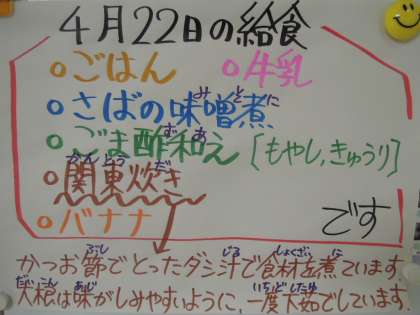 4月22日の給食
○ごはん ○牛乳
○さばの味噌煮
○ごま酢和え[もやし,きゅうり]
○関東炊き
○バナナ
です
かつお節でとったダシ汁で食材を煮ています。
大根は味がしみやすいように、一度下茹でしています。